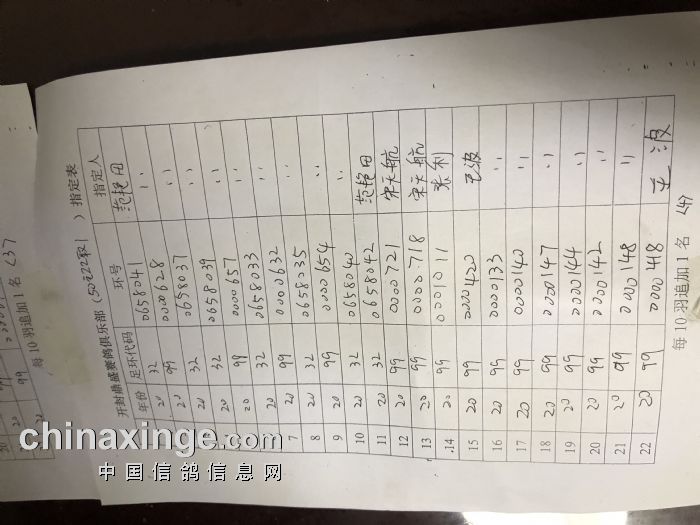 开封鼎盛赛鸽俱乐部（50元22取1）指定表
年份 足环代码 环号 指定人
1 20 32 0658041 范艳田
2 20 99 0000628 〃
3 20 32 0658037 〃
4 20 32 0658039 〃
5 20 99 0000657 〃
6 20 32 0658033 〃
7 20 99 0000632 〃
8 20 32 0658035 〃
9 20 99 0000654 〃
10 20 32 0658040 〃
11 20 32 0658042 范艳田
12 20 99 0000721 宋天航
13 20 99 0000718 宋天航
14 20 99 0001011 张利
15 20 99 0000420 王波
16 20 99 0000133 〃
17 20 99 0000140 〃
18 20 99 0000147 〃
19 20 99 0000144 〃
20 20 99 0000142 〃
21 20 99 0000148 〃
22 20 99 0000418 王波
每10羽追加1名 <4>
每10羽追加1名 <3>
chinaxinge.com
中国信鸽信息网